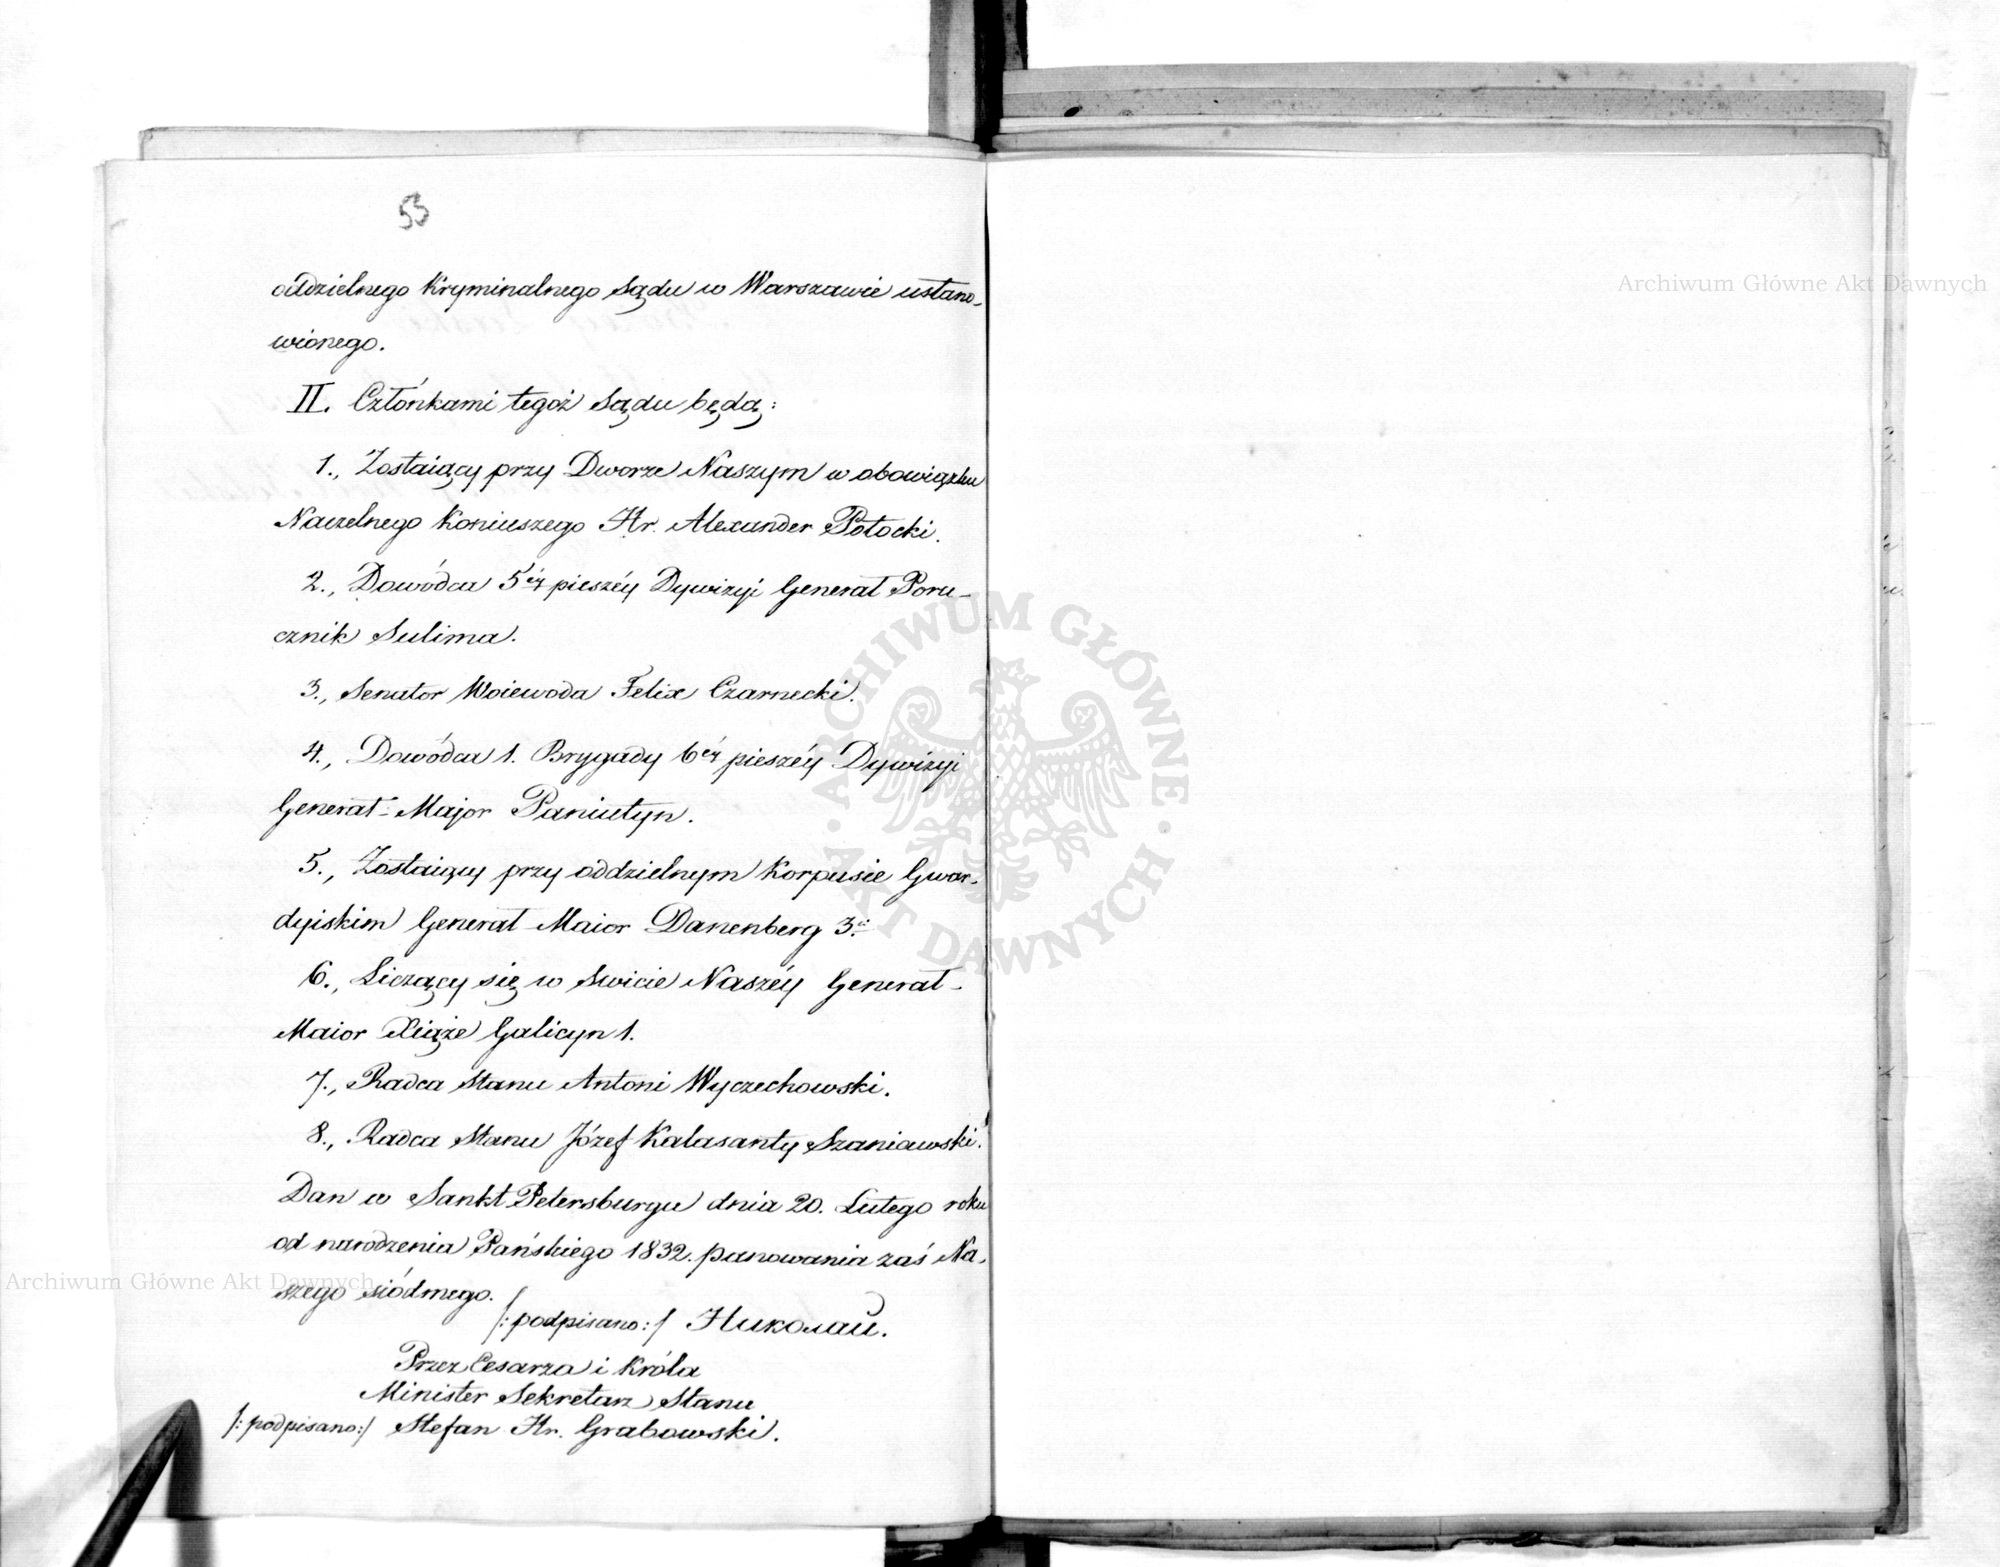 53
oddzielnego Kryminalnego Sądu w Warszawie ustano-
wionego.
II. Człónkami tegoż Sądu będą:
1., Zostaiący przy Dworze Naszym w obowiązku
Naczelnego Koniuszego Hr. Alexander Potocki.
2., Dowódca 5éy pieszéy Dywizyi Generał Poru-
cznik Sulima.
3., Senator Woiewoda Felix Czarnecki.
4., Dowódca 1. Brygady 6éy pieszéy Dywizyi
Generał-Major Paniutyn.
5., Zostaiący przy oddzielnym Korpusie Gwar-
dyiskim Generał Maior Danenberg 3.
6., Liczący się w Swicie Naszéy Generał-
Maior Xiąże Galicyn 1.
7., Radca Stanu Antoni Wyczechowski.
8., Radca Stanu Józef Kalasanty Szaniawski.
Dan w Sankt Petersburgu dnia 20. Lutego roku
od narodzenia Pańskiego 1832. panowania zaś Na-
szego siódmego.
/:podpisano:/ Николай.
Przez Cesarza i Króla
Minister Sekretarz Stanu
/:podpisano:/ Stefan Hr. Grabowski.
Archiwum Główne Akt Dawnych
Archiwum Główne Akt Dawnych
ARCHIWUM GŁÓWNE
AKT DAWNYCH